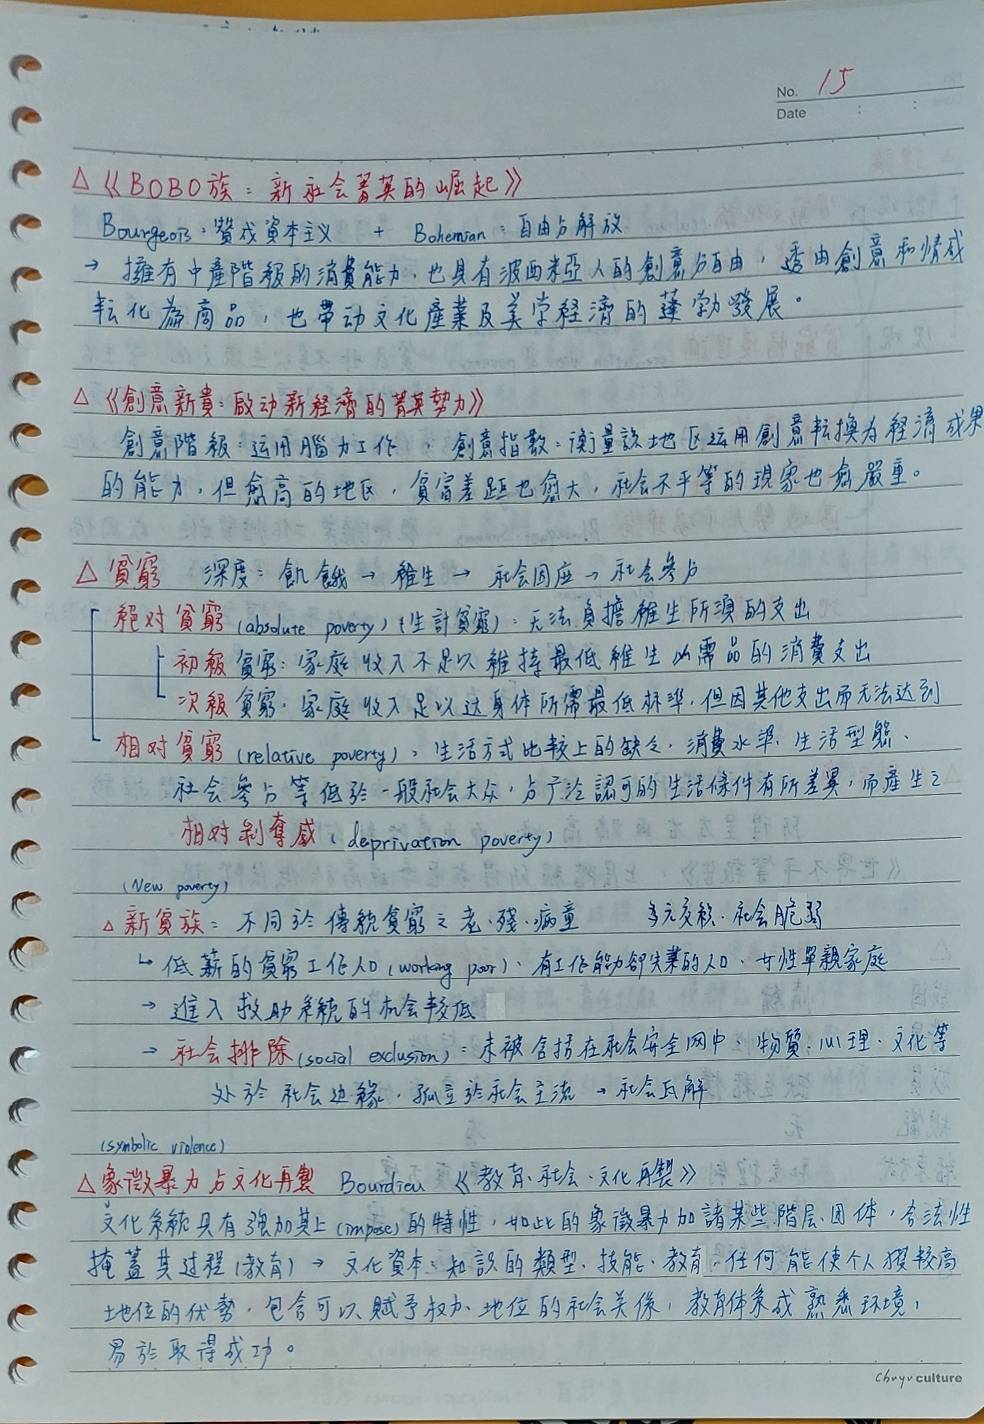 No. 15
Date : :
△《BOBO族：新社会菁英的崛起》
Bourgeois：贊成資本主义 + Bohemian：自由与解放
→ 擁有中產階級的消費能力，也具有波西米亞人的創意与自由，透由創意和情感
転化為商品，也带动文化產業及美学経濟的蓬勃發展。
△《創意新貴：啟动新経濟的菁英勢力》
創意階級：运用腦力工作 ， 創意指数：衡量該地区运用創意転換为経済成果
的能力，但愈高的地区，貧富差距也愈大，社会不平等的現象也愈嚴重。
△ 貧窮 深度：飢餓 → 維生 → 社会因座 → 社会參与
絕対貧窮(absolute poverty)(生計貧窮)：无法負擔維生所須的支出
初級貧窮：家庭收入不足以維持最低維生必需品的消費支出
次級貧窮：家庭收入足以达身体所需最低标準，但因其他支出而无法达到
相対貧窮(relative poverty)：生活方式比較上的缺乏，消費水準、生活型態、
社会參与等低於一般社会大众，与广泛認可的生活條件有所差異，而產生之
相対剝奪感 (deprivation poverty)
(New poverty)
△ 新貧族：不同於傳統貧窮之老、殘、病童 多元交織、社会脆弱
↳ 低薪的貧窮工作人口(working poor)、有工作能力卻失業的人口、女性單親家庭
→ 進入救助系統的机会較低
→ 社会排除(social exclusion)：未被包括在社会安全网中、物質、心理、文化等
处於社会边緣，孤立於社会主流 → 社会瓦解
(symbolic violence)
△ 象徵暴力与文化再製 Bourdieu 《教育、社会、文化再製》
文化系統具有強加其上(impose)的特性，如此的象徵暴力加諸某些階层、团体，合法性
掩蓋其过程(教育) → 文化資本：知識的類型、技能、教育，任何能使个人獲較高
地位的优勢，包含可以賦予权力、地位的社会关係，教育体系成熟悉环境，
易於取得成功。
Chuyu culture